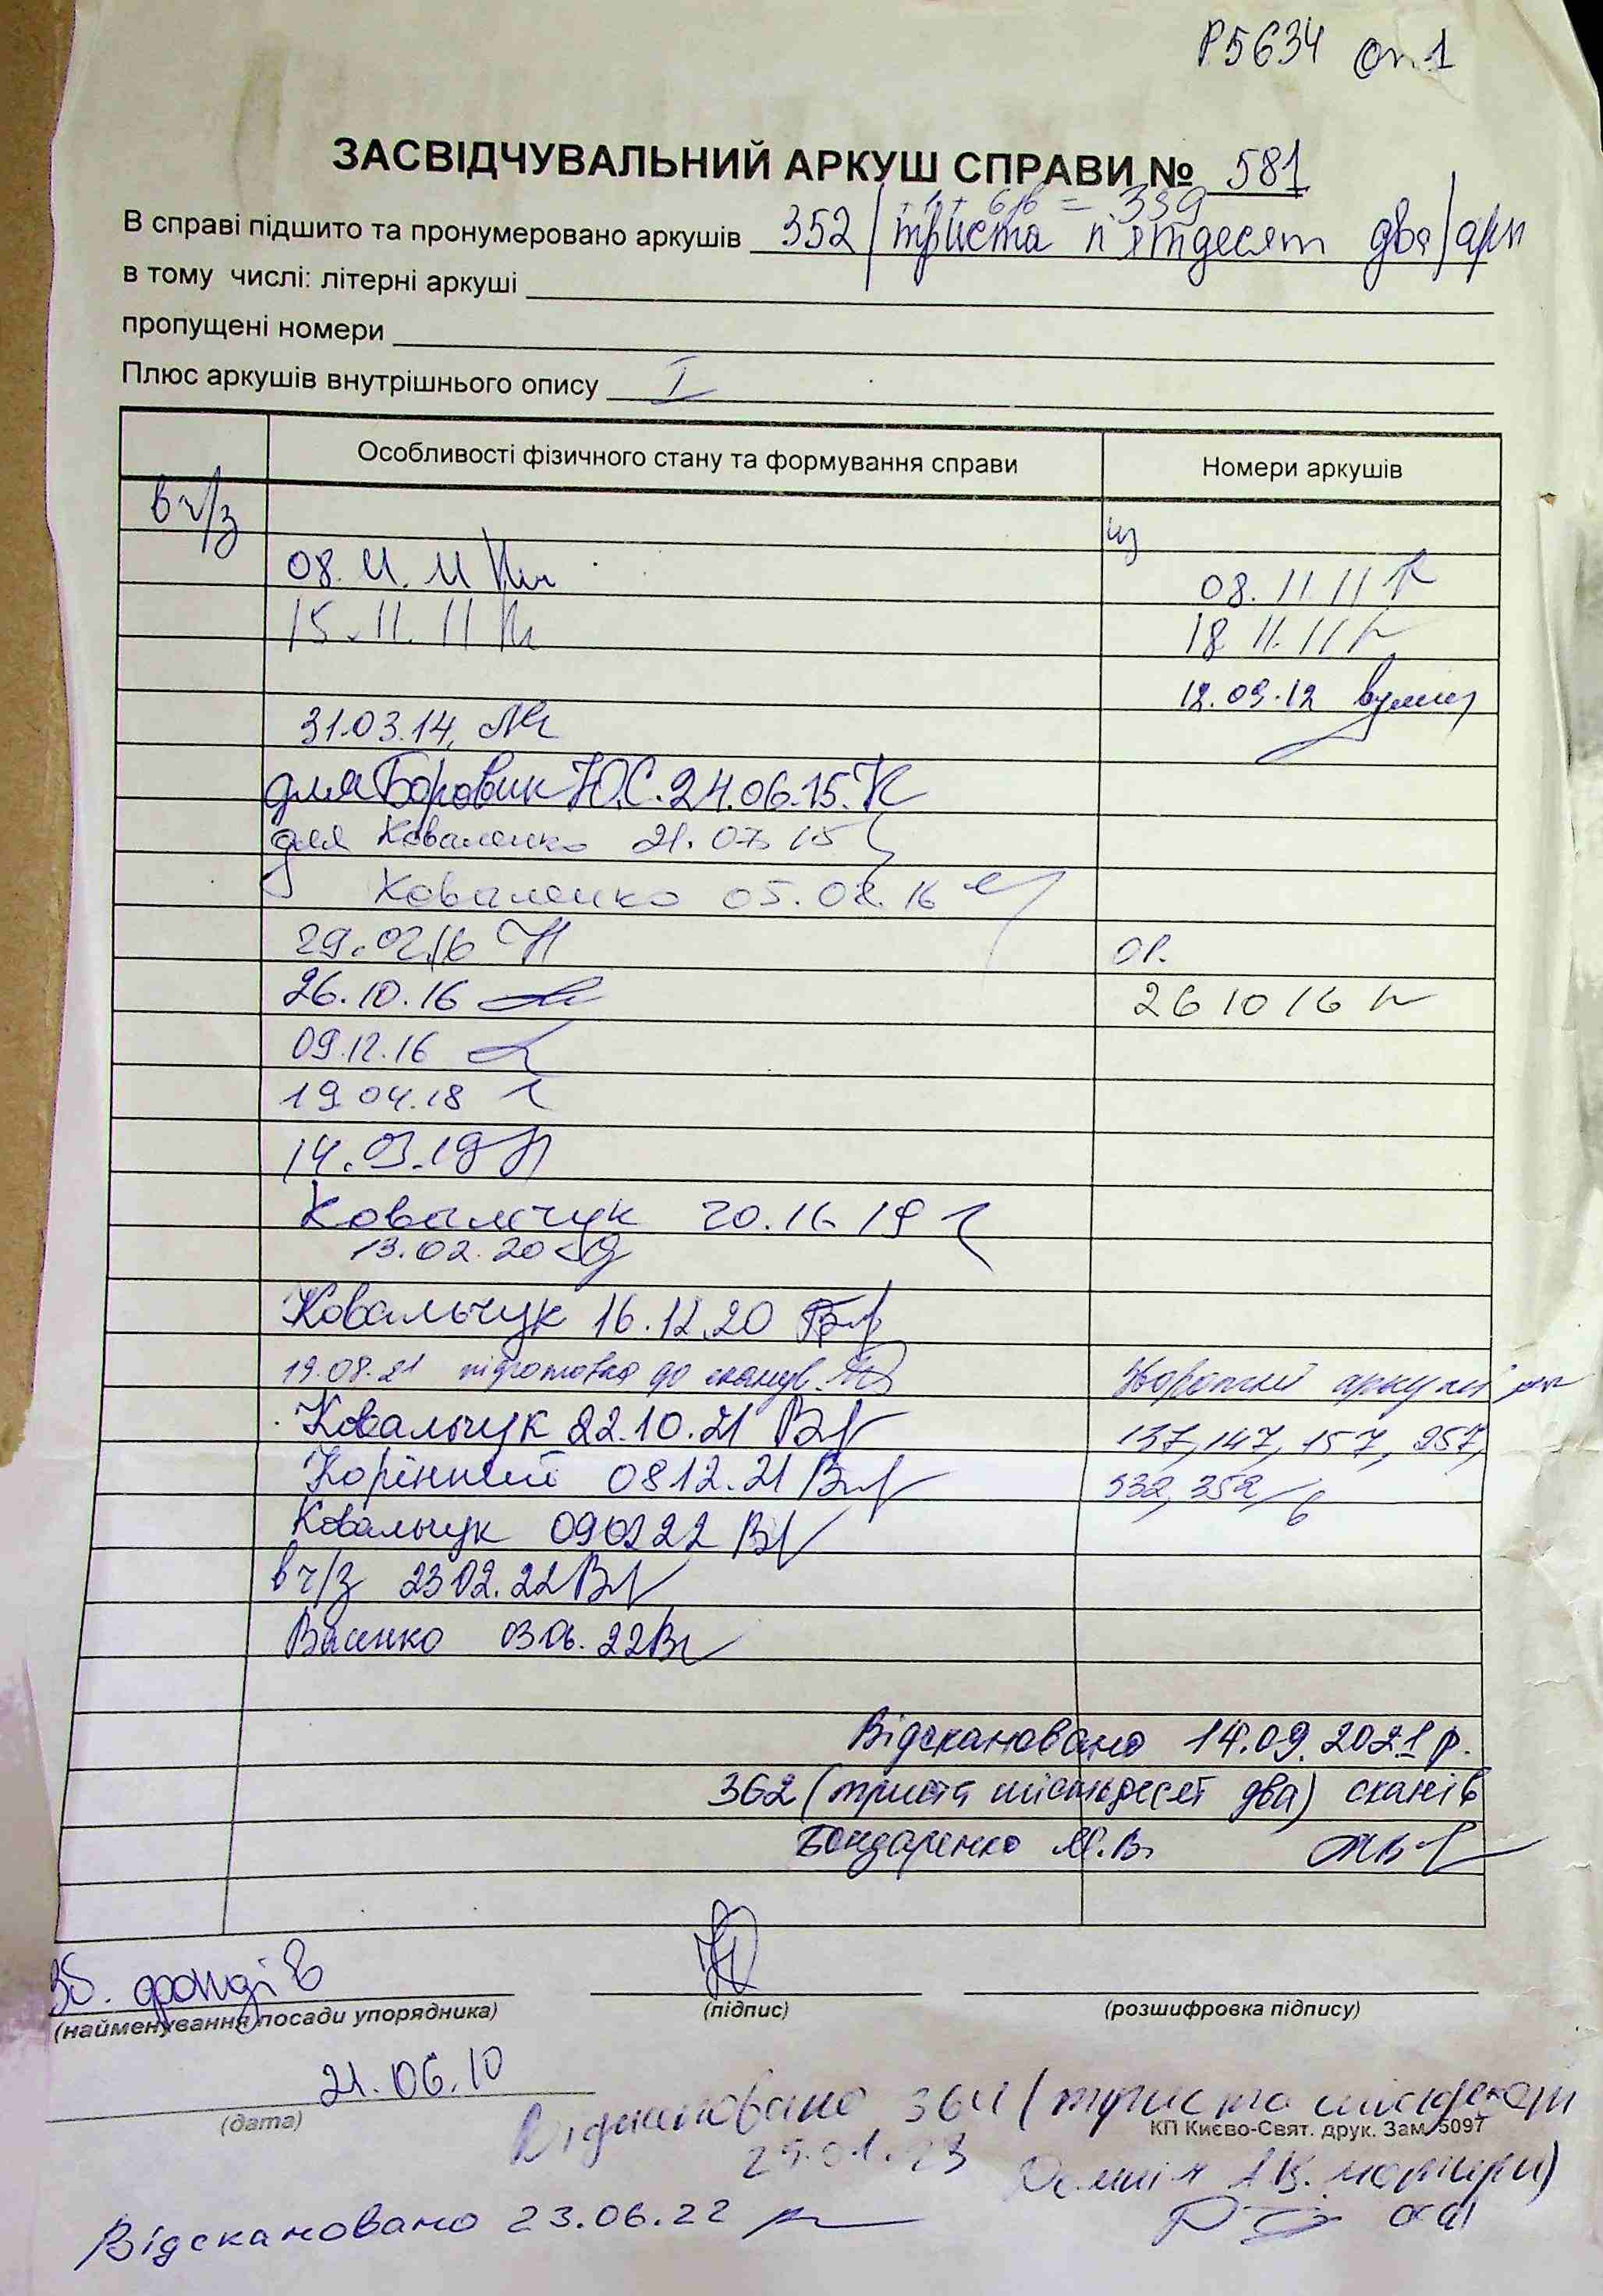 Р5634 оп 1
ЗАСВІДЧУВАЛЬНИЙ АРКУШ СПРАВИ № 581
В справі підшито та пронумеровано аркушів 352 /триста п'ятдесят два/ арк
в тому числі: літерні аркуші
пропущені номери
Плюс аркушів внутрішнього опису I
Особливості фізичного стану та формування справи Номери аркушів
в ч/з
08. 11. 11 08. 11 11
15. 11. 11 18 11. 11
12.09.12
31.03.14,
для Боровик Ю.С. 24.06.15.
для Коваленко 21.07.15
Коваленко 05.02.16
29.02.16
26.10.16 26 10 16
09.12.16
19.04.18
14.03.19
Ковальчук 20.11.19
13.02.20
Ковальчук 16.12.20
19.08.21 підготовка до сканув.
Ковальчук 22.10.21 137, 147, 157, 257,
Корінний 08 12. 21 332, 352
Ковальчук 090222
в ч/з 23 02. 22
03 06. 22
Відскановано 14.09.2021 р.
362 (триста шістдесят два) сканів
Бондаренко М.В.
Зб. фондів
(найменування посади упорядника) (підпис) (розшифровка підпису)
21.06.10
(дата)
Відскановано 364 (триста шістдесят
КП Києво-Свят. друк. Зам. 5097
чотири)
Відскановано 23.06.22